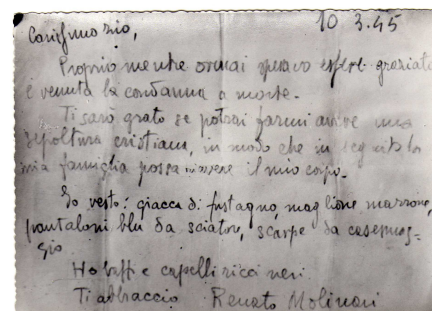 10.3.45
Carissimo zio,
Proprio mentre ormai speravo essere graziato
è venuta la condanna a morte.
Ti sarò grato se potrai farmi avere una
sepoltura cristiana, in modo che in seguito la
mia famiglia possa avere il mio corpo.
Io vesto: giacca di fustagno, maglione marrone,
pantaloni blu da sciatore, scarpe da casermag-
gio
Ho baffi e capelli ricci neri
Ti abbraccio Renato Molinari